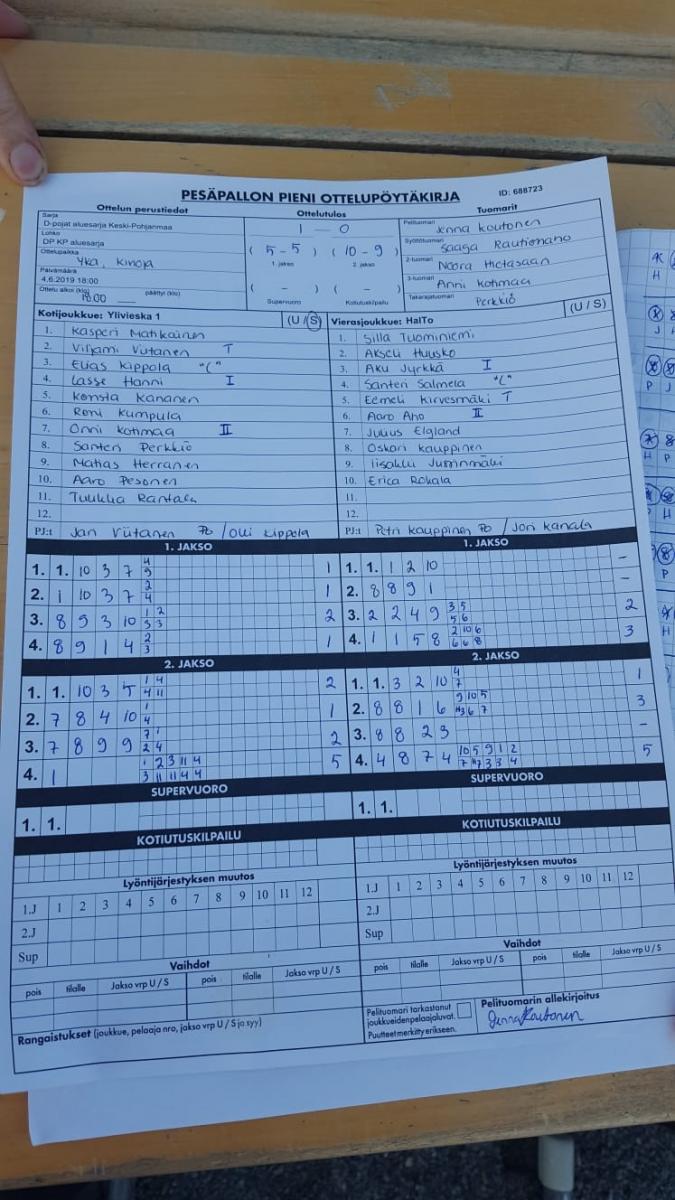 PESÄPALLON PIENI OTTELUPÖYTÄKIRJA
ID: 688723
Ottelun perustiedot
Sarja
D-pojat aluesarja Keski-Pohjanmaa
Lohko
DP KP aluesarja
Ottelupaikka
Yka, Kinoja
Päivämäärä
4.6.2019 18:00
Ottelu alkoi (klo) 18:00 päättyi (klo)
Ottelutulos
1 - 0
( 5 - 5 ) ( 10 - 9 )
1. jakso 2. jakso
( - ) ( - )
Supervuoro Kotiutuskilpailu
Tuomarit
Pelituomari Jenna Koutonen
Syöttötuomari Saaga Rautionaho
2-tuomari Noora Hietasaari
3-tuomari Anni Kotimaa
Takarajatuomari Perkkiö
Kotijoukkue: Ylivieska 1 (U / S)
1. Kasperi Matikainen
2. Viljami Viitanen T
3. Elias Kippola "C"
4. Lasse Hanni I
5. Konsta Kananen
6. Roni Kumpula
7. Onni Kotimaa II
8. Santeri Perkkiö
9. Matias Herranen
10. Aaro Pesonen
11. Tuukka Rantala
12.
PJ:t Jan Viitanen / Olli Kippola
Vierasjoukkue: HalTo (U / S)
1. Silla Tuominiemi
2. Akseli Huusko
3. Aku Jyrkkä I
4. Santeri Salmela "C"
5. Eemeli Kirvesmäki T
6. Aaro Aho II
7. Julius Elgland
8. Oskari Kauppinen
9. Iisakki Juminmäki
10. Erica Rokala
11.
12.
PJ:t Petri Kauppinen / Jori Kanala
1. JAKSO
1. 1. 10 3 7 4 9 1
2. 1 10 3 7 2 4 1
3. 8 9 3 10 1 2 3 3 2
4. 8 9 1 4 2 3 1
1. JAKSO
1. 1. 1 2 10 -
2. 8 8 9 1 -
3. 2 2 4 9 3 5 5 6 2
4. 1 1 5 8 2 10 6 6 6 8 3
2. JAKSO
1. 1. 10 3 5 1 4 4 11 2
2. 7 8 4 10 1 4 1
3. 7 8 9 9 7 1 2 4 2
4. 1 1 2 3 11 4 3 11 11 4 4 5
2. JAKSO
1. 1. 3 2 10 4 7 1
2. 8 8 1 6 9 10 5 6 7 3
3. 8 8 2 3 -
4. 4 8 7 4 10 5 9 1 2 7 7 3 3 4 5
SUPERVUORO
1. 1.
SUPERVUORO
1. 1.
KOTIUTUSKILPAILU
KOTIUTUSKILPAILU
Lyöntijärjestyksen muutos
1.J 1 2 3 4 5 6 7 8 9 10 11 12
2.J
Sup
Lyöntijärjestyksen muutos
1.J 1 2 3 4 5 6 7 8 9 10 11 12
2.J
Sup
Vaihdot
pois tilalle Jakso vrp U / S pois tilalle Jakso vrp U / S
Vaihdot
pois tilalle Jakso vrp U / S pois tilalle Jakso vrp U / S
Rangaistukset (joukkue, pelaaja nro, jakso vrp U / S ja syy)
Pelituomari tarkastanut
joukkueiden pelaajaluvat.
Puutteet merkitty erikseen.
Pelituomarin allekirjoitus
Jenna Koutonen